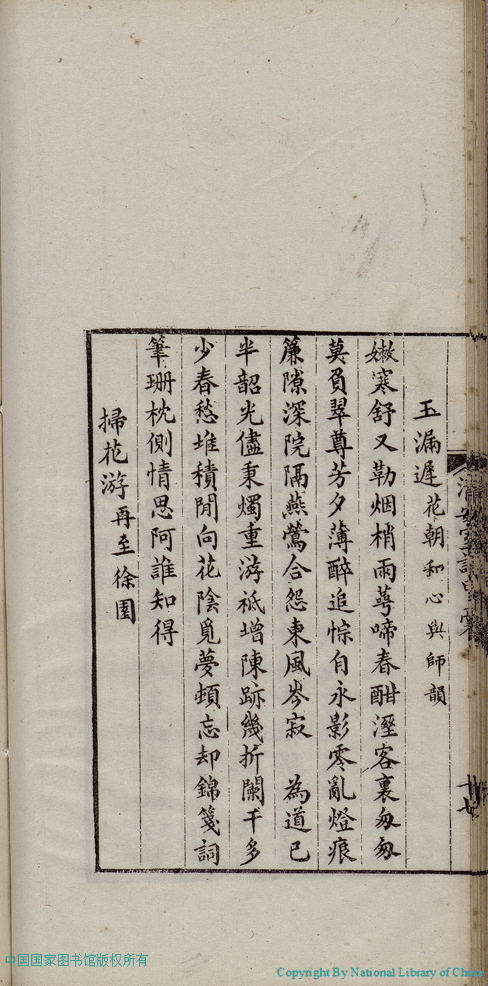 玉漏遲花朝和心與師韻
嫩寒舒又勒烟梢雨萼啼春酣溼客裏匆匆
莫負翠尊芳夕薄醉追悰自永影零亂燈痕
簾隙深院隔燕鶯合怨東風岑寂 為道已
半韶光儘秉燭重游祇增陳跡幾折闌干多
少春愁堆積閒向花陰覓夢頓忘却錦箋詞
筆珊枕側情思阿誰知得
掃花游再至徐園
十七
中国国家图书馆版权所有
Copyright By National Library of China